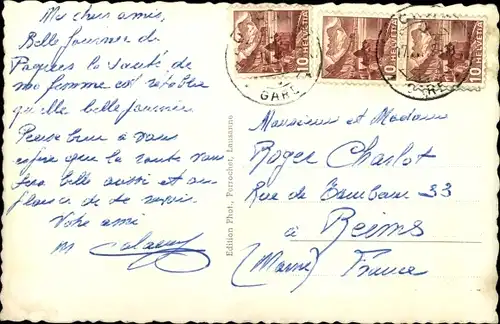 Mes chers amis,
Belle journée de
Pâques la santé de
ma femme est rétablie
quelle belle journée
Pense bien à vous
espère que la route vous
sera belle aussi et au
plaisir de se revoir.
Votre ami
M
Edition Phot. Perrochet, Lausanne
10 HELVETIA
10 HELVETIA
10 HELVETIA
GARE
GARE
Monsieur et Madame
Roger Charlot
Rue de 33
à Reims
(Marne) France